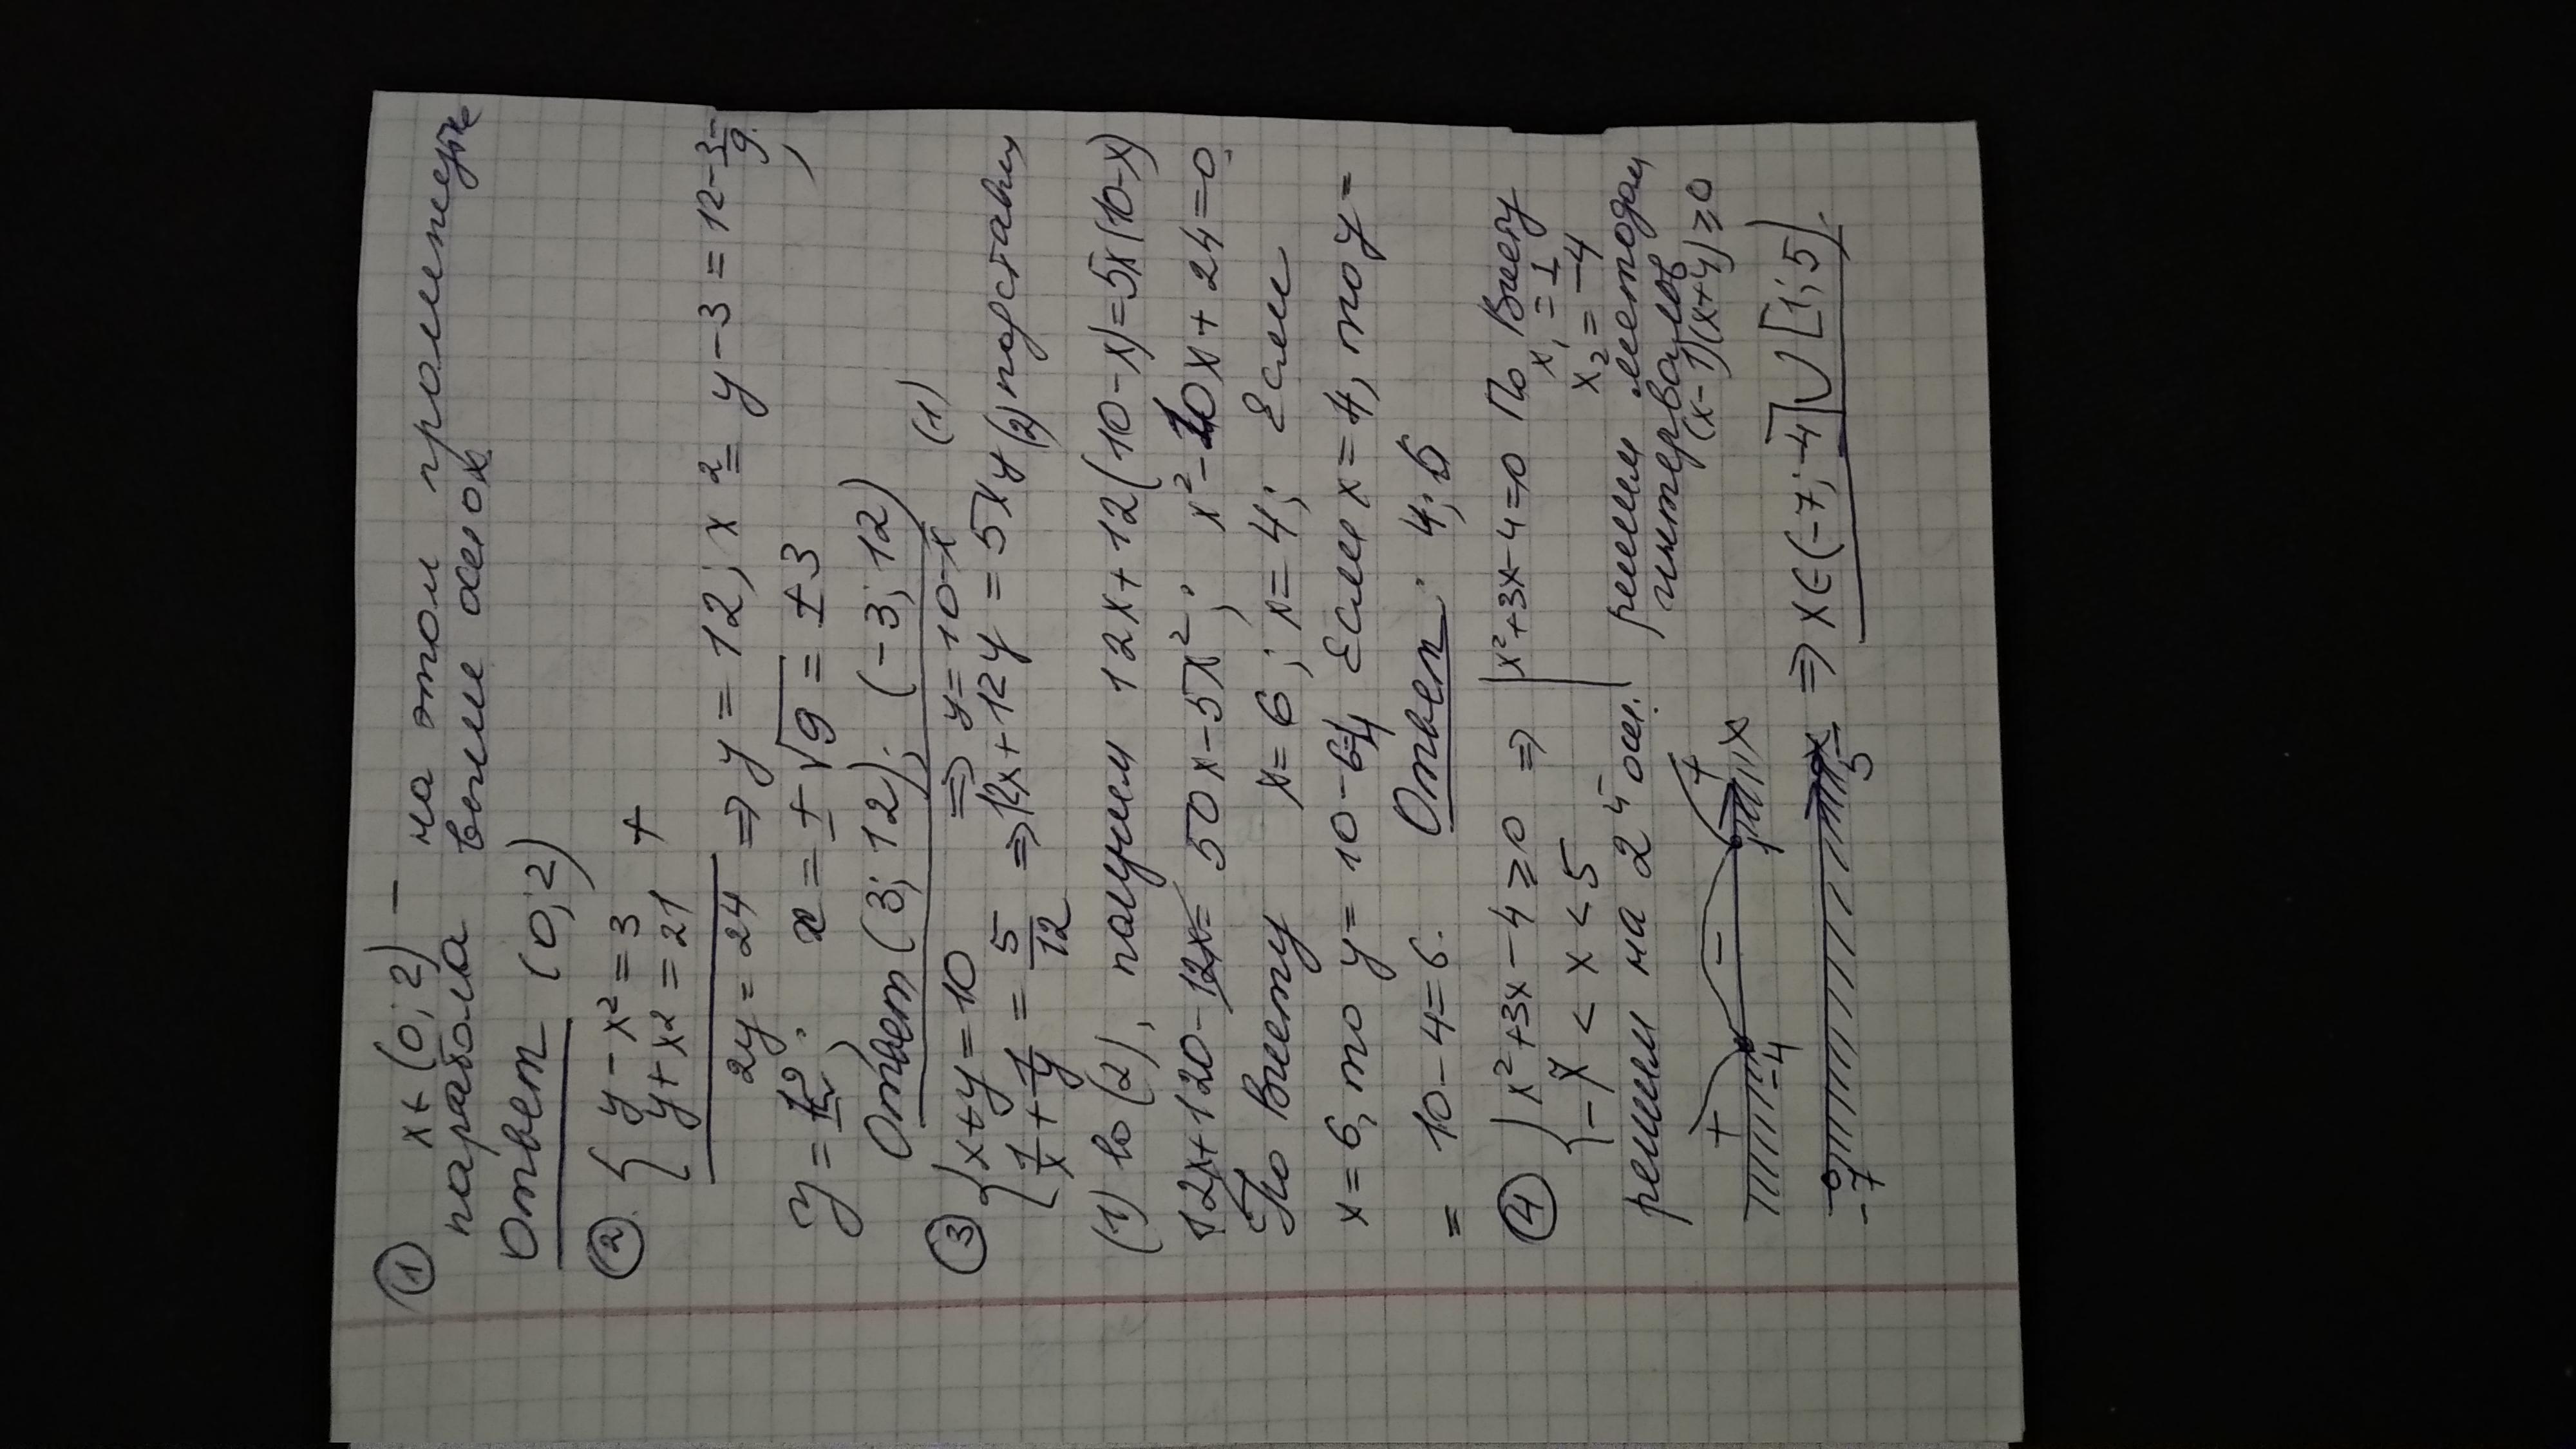 ① x ∈ (0; 2) – на этом промежутке
парабола выше оси ox
Ответ (0; 2)
② { y – x² = 3
y + x² = 21 +
2y = 24 ⇒ y = 12; x² = y – 3 = 12 – 3 = 9;
y = 12; x = ± √9 = ± 3
Ответ (3; 12); (–3; 12)
③ { x + y = 10 ⇒ y = 10 – x (1)
1/x + 1/y = 5/12 ⇒ 12x + 12y = 5xy (2) подставим
(1) во (2), получим 12x + 12(10 – x) = 5x(10 – x)
12x + 120 – 12x = 50x – 5x²; x² – 10x + 24 = 0.
По Виету x = 6; x = 4; Если
x = 6, то y = 10 – 6 = 4 Если x = 4, то y =
= 10 – 4 = 6. Ответ: 4; 6
④ { x² + 3x – 4 ≥ 0 ⇒ | x² + 3x – 4 = 0 По Виету
–7 < x < 5 x₁ = 1
x₂ = –4
решим на 2ˣ осях. решим методом
интервалов
(x – 1)(x + 4) ≥ 0
+ – +
–4 1 x
–7 5 x ⇒ x ∈ (–7; –4] ∪ [1; 5).